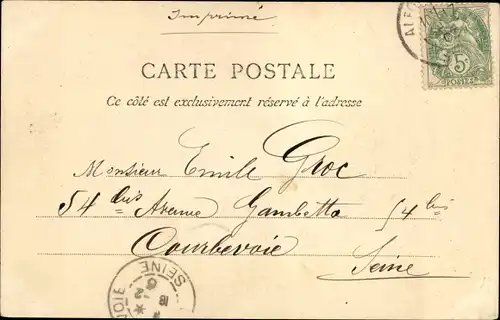 Imprimé
CARTE POSTALE
Ce côté est exclusivement réservé à l'adresse
Monsieur Emile Groc
54 bis Avenue Gambetta 54 bis
Courbevoie
Seine
5c
POSTES
SEINE